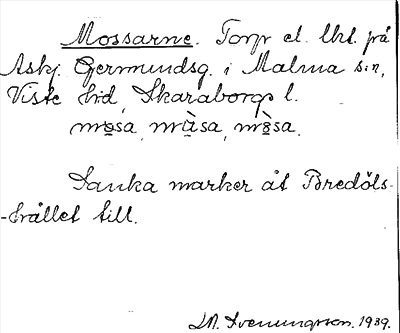 Mossarne. Torp el. lkt. på
Askj. Germundsg. i Malma s:n,
Viste hd, Skaraborgs l.
mo̱sa, mu̱̇̀sa, mȯ̱̀sa.
Sanka marker åt Bredöls-
-hållet till.
Svenungsson. 1939.